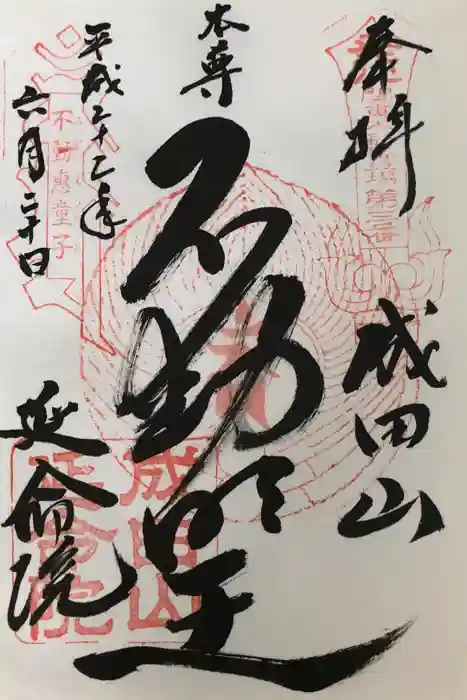 奉拝
成田山
本尊
不動明王
平成二十二年
六月二十日
延命院
不動恵童子
成田山
延命院